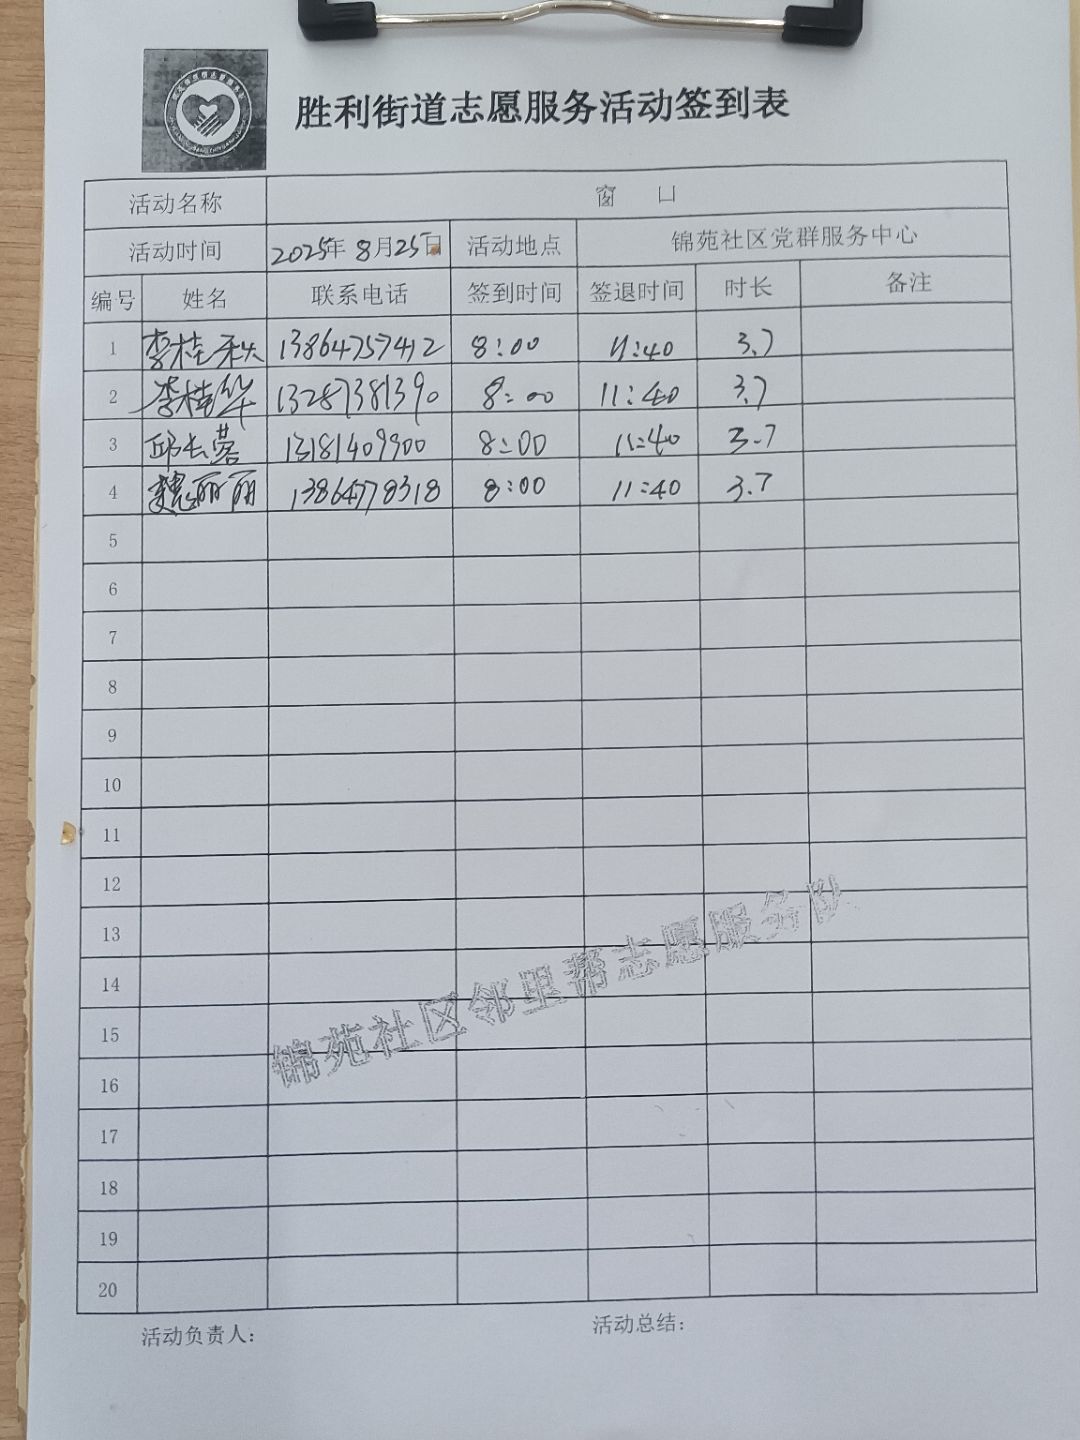 胜利街道志愿服务活动签到表
活动名称 窗 口
活动时间 2025年 8月25日 活动地点 锦苑社区党群服务中心
编号 姓名 联系电话 签到时间 签退时间 时长 备注
1 李桂秋 13864757412 8:00 11:40 3.7
2 李桂华 13287381390 8:00 11:40 3.7
3 邱长蓉 13181409900 8:00 11:40 3.7
4 魏丽丽 13864778318 8:00 11:40 3.7
5
6
7
8
9
10
11
12
13
14
15
16
17
18
19
20
锦苑社区邻里帮志愿服务队
活动负责人:
活动总结: